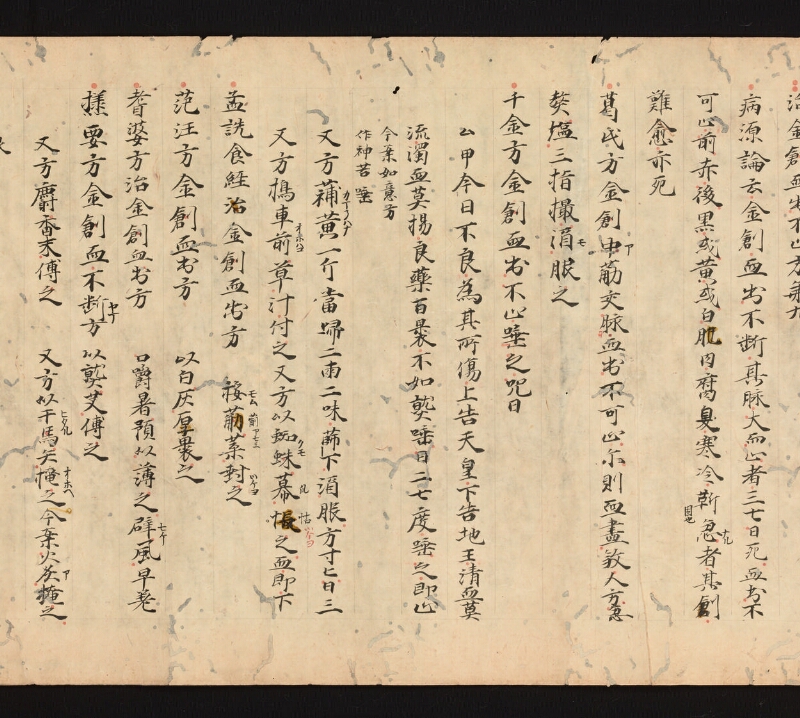 治金創血出不止方第九
病源論云金創血出不断其脉大而止者三七日死血出不
可止前赤後黒或黄或白肌肉腐臭寒冷靳急者其創
難愈亦死
葛氏方金創中筋交脉血出不可止尓則血盡殺人方急
熬塩三指撮酒服之
千金方金創血出不止唾之咒曰
某甲今日不良為其所傷上告天皇下告地王清血莫
流濁血莫揚良藥百裹不如熱唾日二七度唾之即止
今案如意方
作神若唾
又方蒲黄一斤當歸二兩二味篩下酒服方寸匕日三
又方搗車前草汁付之又方以蜘蛛幕帳之血即下
孟詵食經治金創血出方 挼葉封之
范汪方金創血出方 以白灰厚裹之
耆婆方治金創血出方 口嚼薯預以薄之辟風早差
撮要方金創血不断方 以熟艾傅之
又方麝香末傅之 又方以干馬矢掩之今案火灰掩之